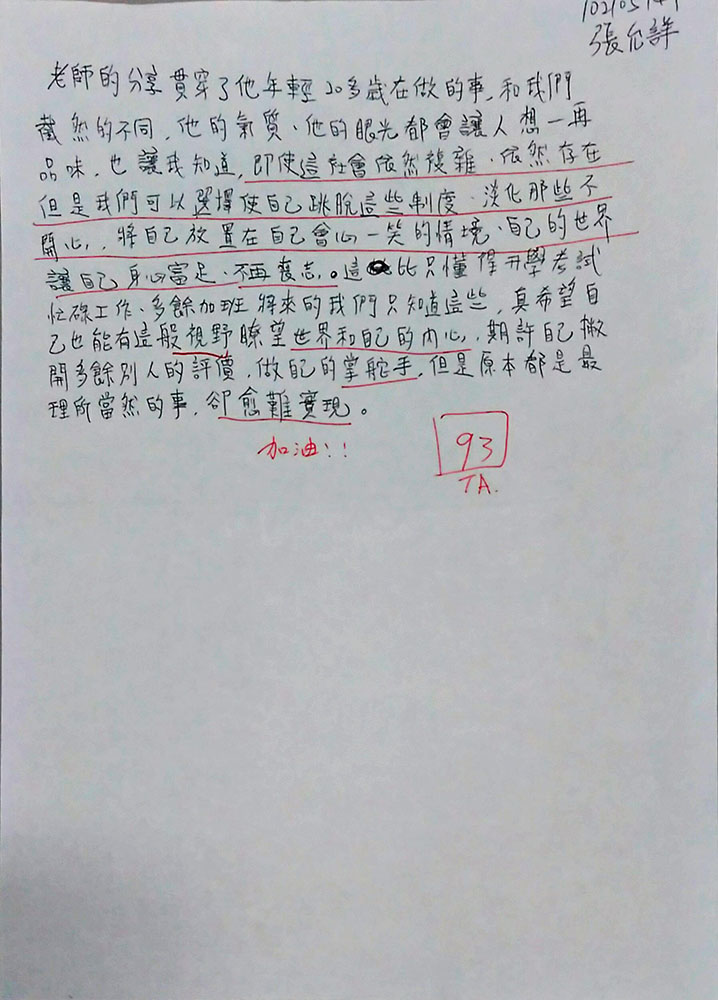 張允詳
老師的分享貫穿了他年輕20多歲在做的事,和我們
截然的不同,他的氣質、他的眼光都會讓人想一再
品味,也讓我知道,即使這社會依然複雜、依然存在
但是我們可以選擇使自己跳脫這些制度、淡化那些不
開心,將自己放置在自己會心一笑的情境、自己的世界
讓自己身心富足、不再喪志,。這比只懂得升學考試
忙碌工作、多餘加班將來的我們只知道這些,真希望自
己也能有這般視野瞭望世界和自己的內心,期許自己撇
開多餘別人的評價,做自己的掌舵手,但是原本都是最
理所當然的事,卻愈難實現。
加油!!
93
TA.